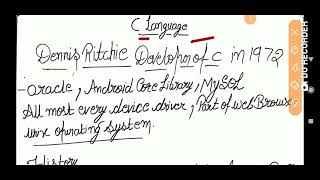 C Language
Dennis Ritchie Developn of C in 1972
- oracle, Android Core Library, MySQL
All most every device driver, Part of web Browser
unix oprating system.
History
DU RECORDER